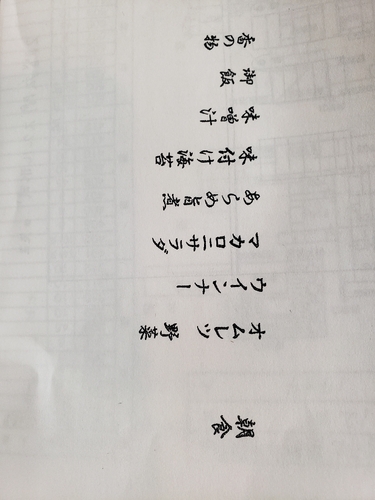 朝食
オムレツ 野菜
ウインナー
マカロニサラダ
あらめ旨煮
味付け海苔
味噌汁
御飯
香の物